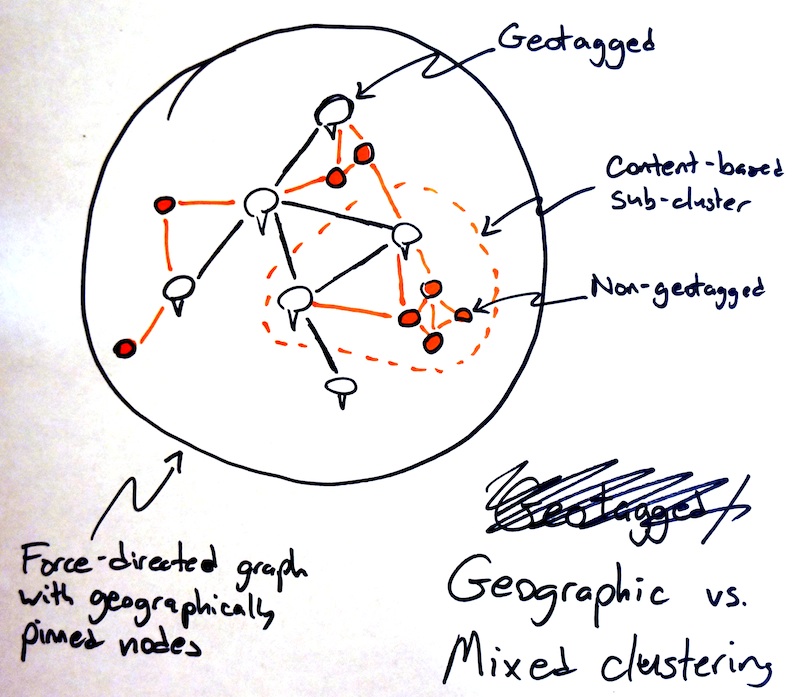 Geotagged
Content-based
Sub-cluster
Non-geotagged
Force-directed graph
with geographically
pinned nodes
Geotagged/
Geographic vs.
Mixed clustering